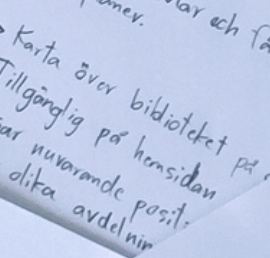 och
Karta över biblioteket på
Tillgänglig på hemsidan
nuvarande posit.
olika avdelnin